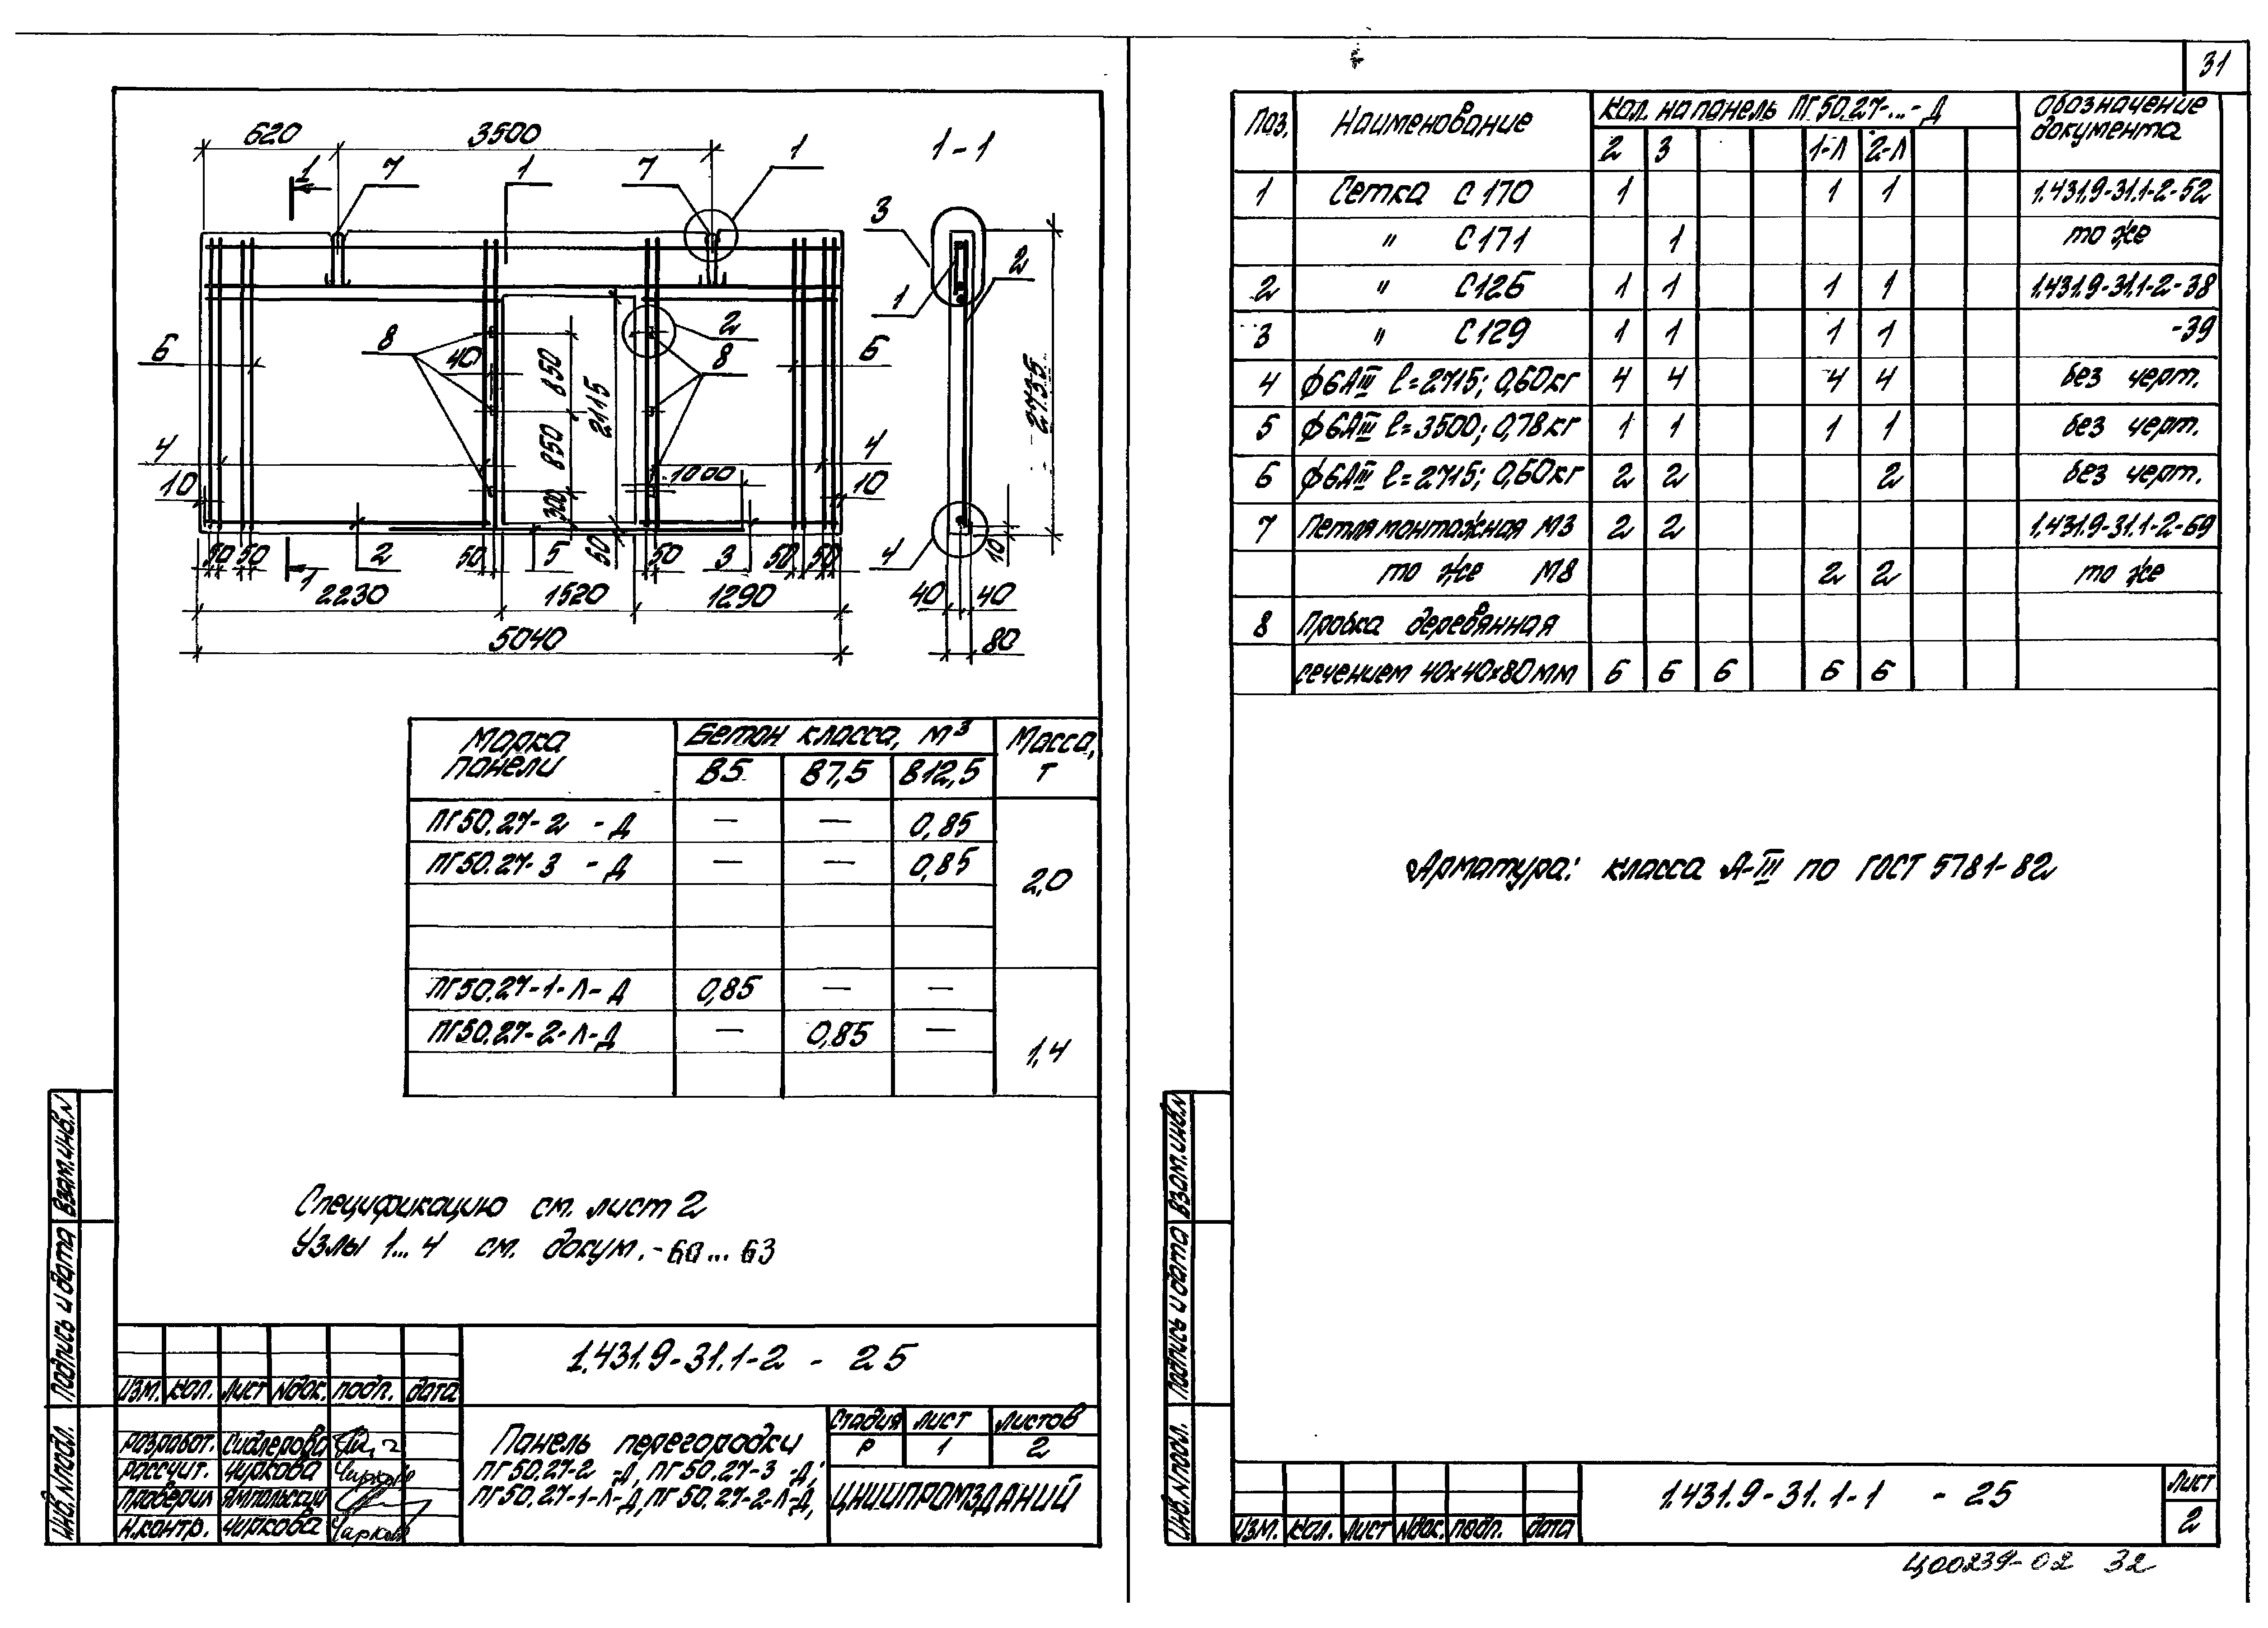 31
620 3500
1 7 1 7 1 1-1
3 2 1
6 8 40 850 2115 2 8 6 2735
4 850 4
10 300 1000 10
50 50 2 50 5 50 50 3 50 50 4 10
1
2230 1520 1290 40 40
5040 80
Марка панели Бетон класса, м³ Масса, т
В5 В7,5 В12,5
ПГ50.27-2 -Д — — 0,85
ПГ50.27-3 -Д — — 0,85
2,0
ПГ50.27-1-Л-Д 0,85 — —
ПГ50.27-2-Л-Д — 0,85 —
1,4
Спецификацию см. лист 2
Узлы 1...4 см. докум. -60...63
Взам.инв.N
Подпись и дата
Инв.Nподл.
1.431.9-31.1-2 - 25
Изм. Кол. Лист Nдок. подп. дата
разработ. Сидлерова
рассчит. Чиркова
проверил Ямпольский
Н.контр. Чиркова
Панель перегородки
ПГ50.27-2 -Д, ПГ50.27-3 -Д;
ПГ50.27-1-Л-Д, ПГ50.27-2-Л-Д,
Стадия Лист Листов
Р 1 2
ЦНИИПРОМЗДАНИЙ
Поз. Наименование Кол. на панель ПГ50.27-...-Д Обозначение документа
2 3 1-Л 2-Л
1 Сетка С170 1 1 1 1.431.9-31.1-2-52
" С171 1 то же
2 " С126 1 1 1 1 1.431.9-31.1-2-38
3 " С129 1 1 1 1 -39
4 ф6АIII l=2715; 0,60кг 4 4 4 4 без черт.
5 ф6АIII l=3500; 0,78кг 1 1 1 1 без черт.
6 ф6АIII l=2715; 0,60кг 2 2 2 без черт.
7 Петля монтажная М3 2 2 1.431.9-31.1-2-69
то же М8 2 2 то же
8 Пробка деревянная
сечением 40х40х80мм 6 6 6 6 6
Арматура: класса А-III по ГОСТ 5781-82
Взам.инв.N
Подпись и дата
Инв.Nподл.
Изм. Кол. Лист Nдок. подп. дата
1.431.9-31.1-1 - 25
Лист
2
Ц00239-02 32